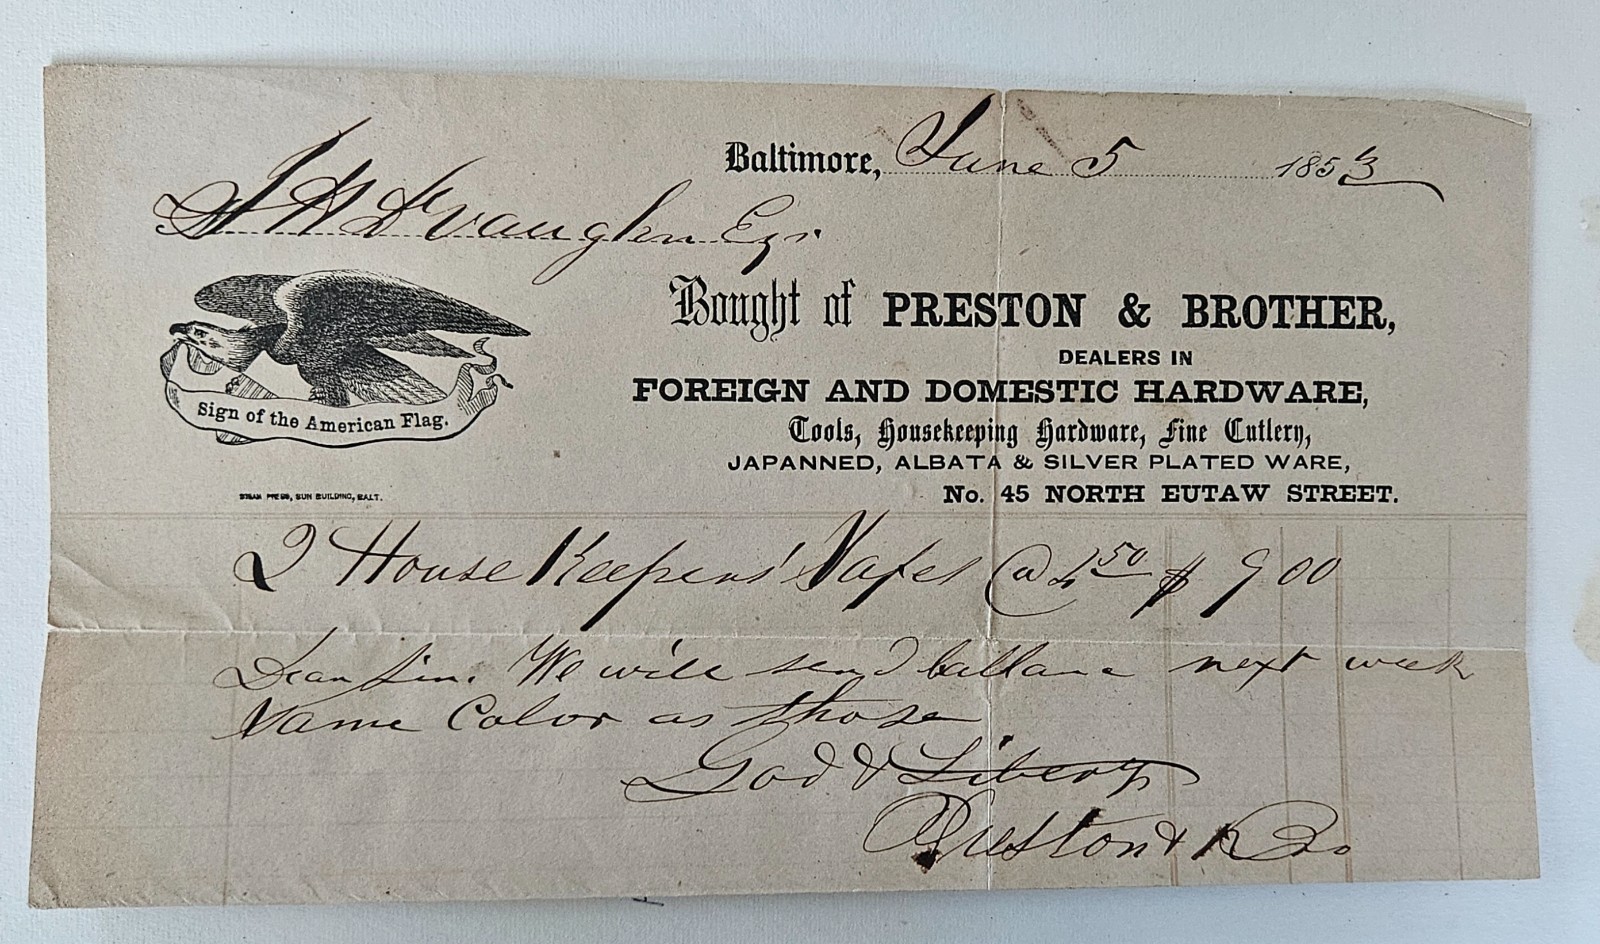 Baltimore, June 5 1853
J H DeVaughn Esqr
Bought of PRESTON & BROTHER,
DEALERS IN
FOREIGN AND DOMESTIC HARDWARE,
Tools, Housekeeping Hardware, Fine Cutlery,
JAPANNED, ALBATA & SILVER PLATED WARE,
No. 45 NORTH EUTAW STREET.
Sign of the American Flag.
STEAM PRESS, SUN BUILDING, BALT.
2 House Keepers' Safes @ 4.50 $ 9 00
Dear Sir. We will send ballance next week
Same Color as those
God & Liberty
Preston & Bro